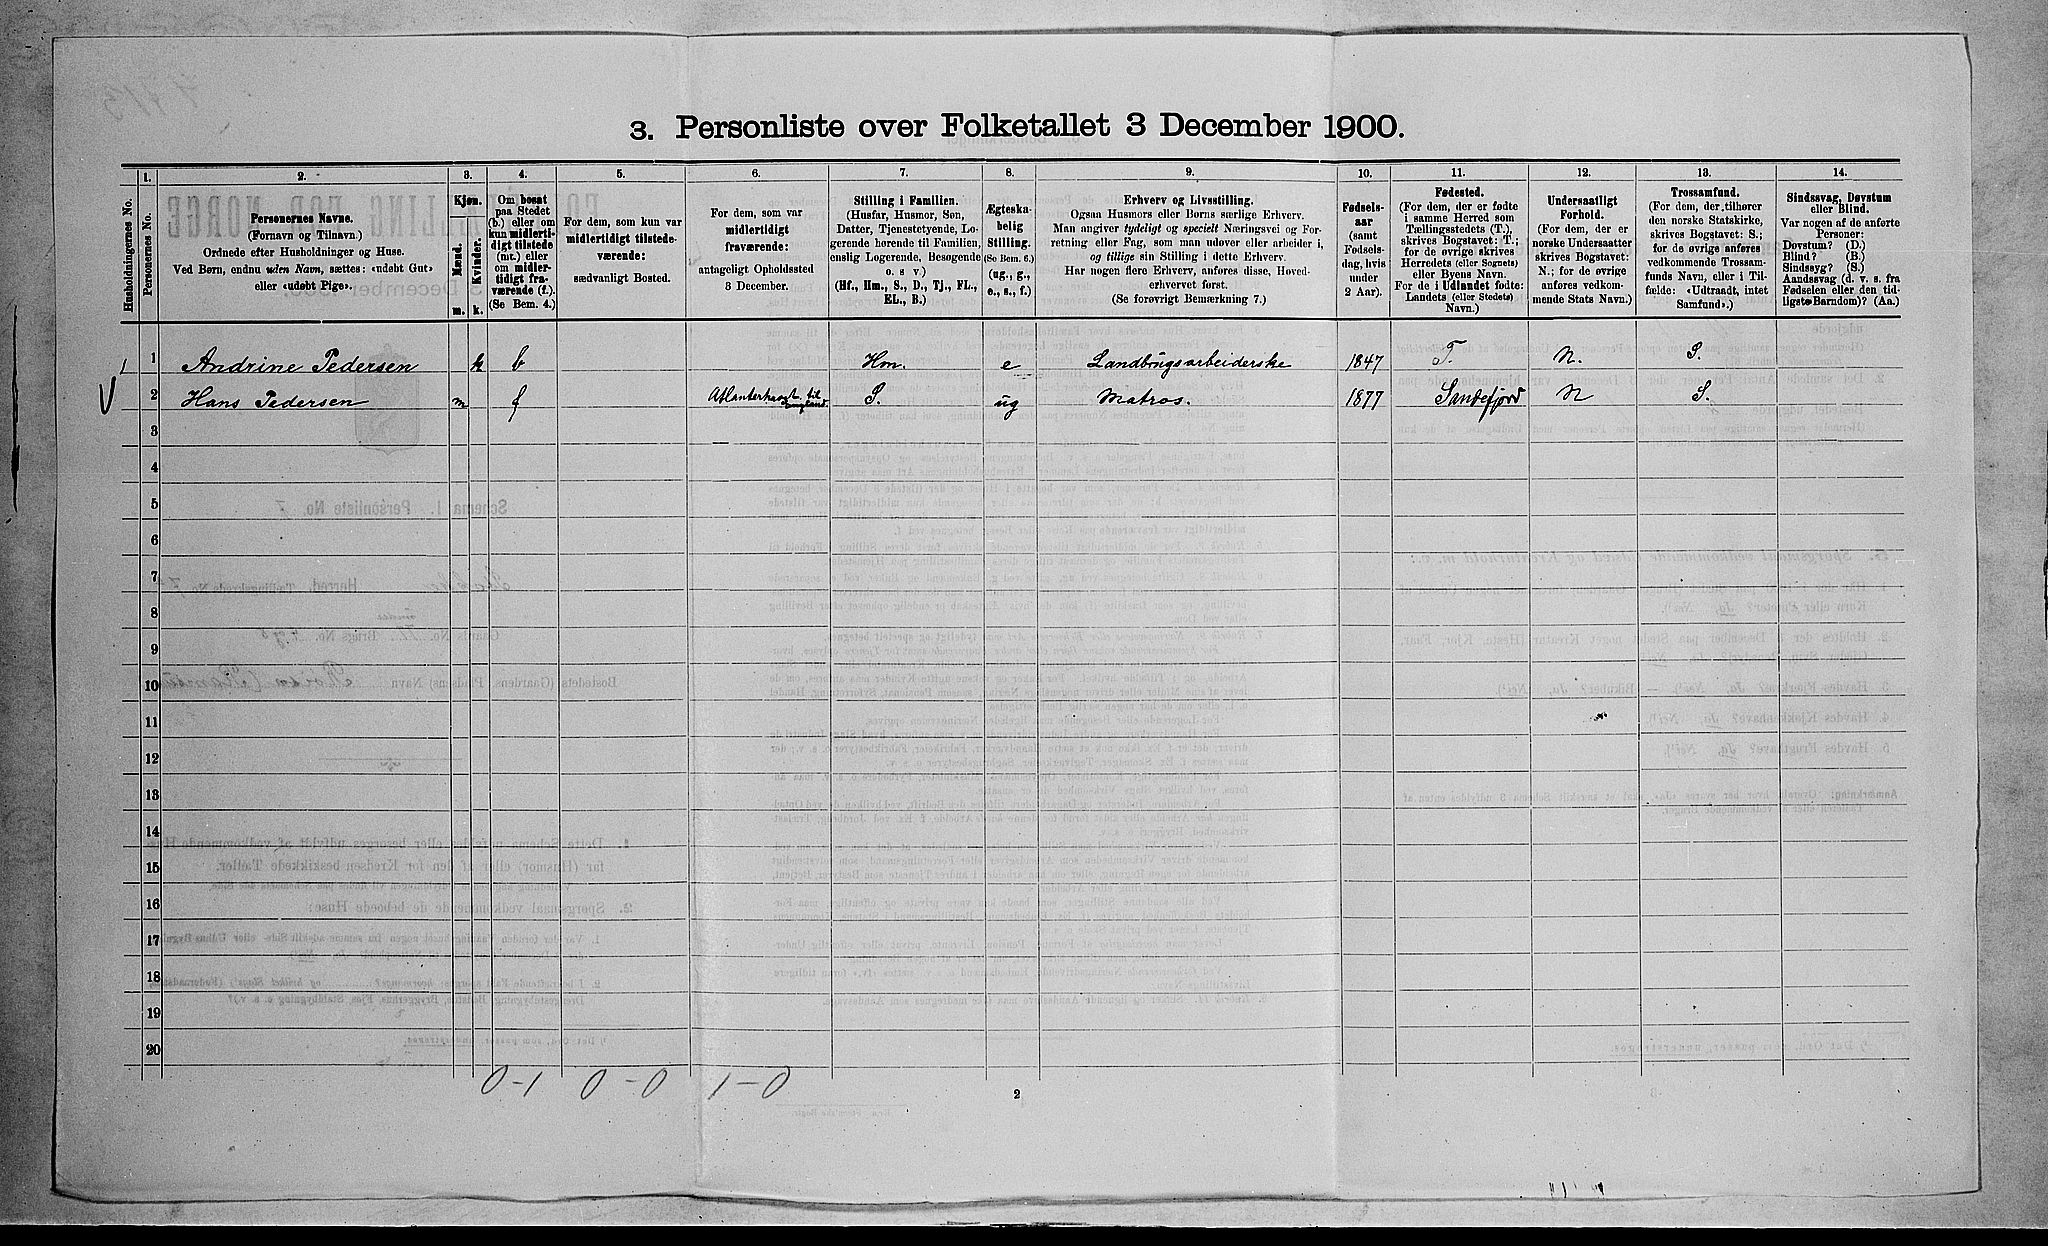 3. Personliste over Folketallet 3 December 1900.
Husholdningernes No.
1.
Personernes No.
2.
Personernes Navne.
(Fornavn og Tilnavn.)
Ordnede efter Husholdninger og Huse.
Ved Børn, endnu uden Navn, sættes: «udøbt Gut»
eller «udøbt Pige».
3.
Kjøn.
Mænd.
Kvinder.
m.
k.
4.
Om bosat
paa Stedet
(b.) eller om
kun midlerti-
digt tilstede
(mt.) eller
om midler-
tidigt fra-
værende (f.).
(Se Bem. 4.)
5.
For dem, som kun var
midlertidigt tilstede-
værende:
sædvanligt Bosted.
6.
For dem, som var
midlertidigt
fraværende:
antageligt Opholdssted
3 December.
7.
Stilling i Familien.
(Husfar, Husmor, Søn,
Datter, Tjenestetyende, Lo-
gerende hørende til Familien,
enslig Logerende, Besøgende
o. s v.)
(Hf., Hm., S., D., Tj., FL.,
EL., B.)
8.
Ægteska-
belig
Stilling.
(Se Bem. 6.)
(ug., g.,
e., s., f.)
9.
Erhverv og Livsstilling.
Ogsaa Husmors eller Børns særlige Erhverv.
Man angiver tydeligt og specielt Næringsvei og For-
retning eller Fag, som man udøver eller arbeider i,
og tillige sin Stilling i dette Erhverv.
Har nogen flere Erhverv, anføres disse, Hoved-
erhvervet først.
(Se forøvrigt Bemærkning 7.)
10.
Fødsels-
aar
(samt
Fødsels-
dag, hvis
under
2 Aar).
11.
Fødested.
(For dem, der er fødte
i samme Herred som
Tællingsstedets (T.),
skrives Bogstavet: T.;
for de øvrige skrives
Herredets (eller Sognets)
eller Byens Navn.
For de i Udlandet fødte:
Landets (eller Stedets)
Navn.)
12.
Undersaatligt
Forhold.
(For dem, der er
norske Undersaatter
skrives Bogstavet:
N.; for de øvrige
anføres vedkom-
mende Stats Navn.)
13.
Trossamfund.
(For dem, der tilhører
den norske Statskirke,
skrives Bogstavet: S.;
for de øvrige anføres
vedkommende Trossam-
funds Navn, eller i Til-
fælde: «Udtraadt, intet
Samfund».)
14.
Sindssvag, Døvstum
eller Blind.
Var nogen af de anførte
Personer:
Døvstum? (D.)
Blind? (B.)
Sindssyg? (S.)
Aandssvag (d. v. s. fra
Fødselen eller den tid-
ligste Barndom)? (Aa.)
1 1 Andrine Pedersen k b Hm. e Landbrugsarbeiderske 1847 T. N. S.
2 Hans Pedersen m f Atlanterhavet til England S. ug Matros. 1877 Sandefjord N S.
3
4
5
6
7
8
9
10
11
12
13
14
15
16
17
18
19
20
0-1 0-0 1-0
2